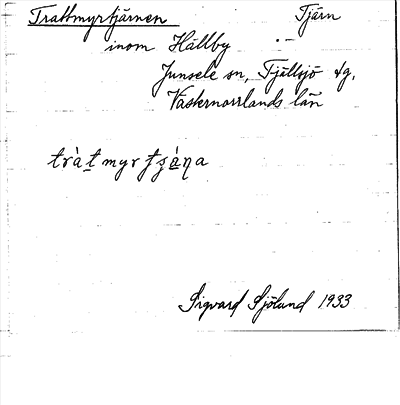 Trattmyrtjärnen Tjärn
inom Hällby
Junsele sn, Fjällsjö tg,
Västernorrlands län
tràt myr tʂä̀ṇa
Sigvard Sjölund 1933